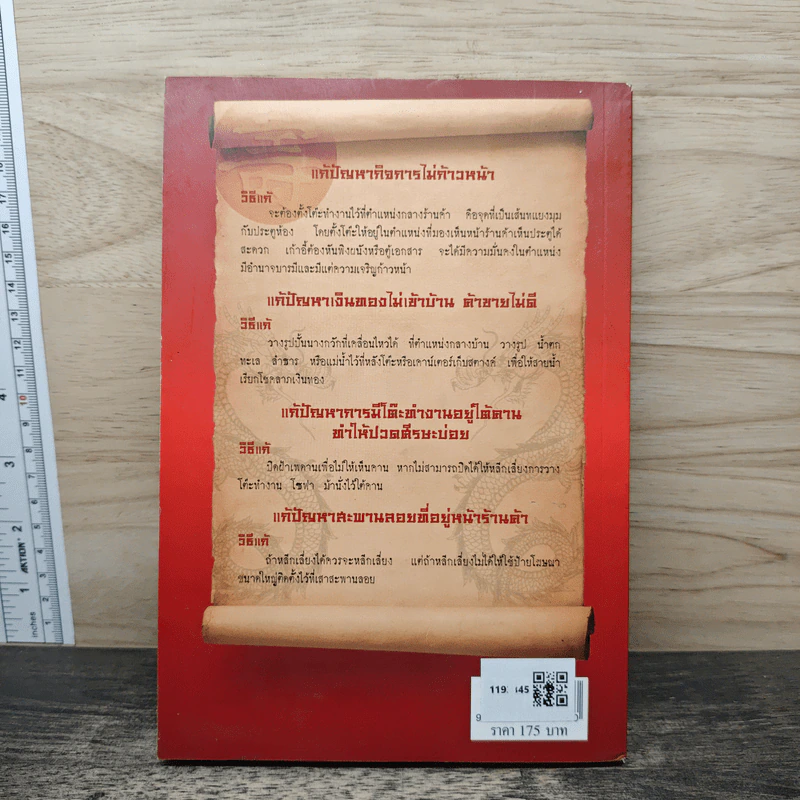 แก้ปัญหากิจการไม่ก้าวหน้า
วิธีแก้
จะต้องตั้งโต๊ะทำงานไว้ที่ตำแหน่งกลางร้านค้า คือจุดที่เป็นเส้นทแยงมุม
กับประตูห้อง โดยตั้งโต๊ะให้อยู่ในตำแหน่งที่มองเห็นหน้าร้านค้าเห็นประตูได้
สะดวก เก้าอี้ต้องหันพิงผนังหรือตู้เอกสาร จะได้มีความมั่นคงในตำแหน่ง
มีอำนาจบารมีและมีแต่ความเจริญก้าวหน้า
แก้ปัญหาเงินทองไม่เข้าบ้าน ค้าขายไม่ดี
วิธีแก้
วางรูปปั้นนางกวักที่เคลื่อนไหวได้ ที่ตำแหน่งกลางบ้าน วางรูป น้ำตก
ทะเล ลำธาร หรือแม่น้ำไว้ที่หลังโต๊ะหรือเคาน์เตอร์เก็บสตางค์ เพื่อให้สายน้ำ
เรียกโชคลาภเงินทอง
แก้ปัญหาการมีโต๊ะทำงานอยู่ใต้คาน
ทำให้ปวดศีรษะบ่อย
วิธีแก้
ปิดฝ้าเพดานเพื่อไม่ให้เห็นคาน หากไม่สามารถปิดได้ให้หลีกเลี่ยงการวาง
โต๊ะทำงาน โซฟา ม้านั่งไว้ใต้คาน
แก้ปัญหาสะพานลอยที่อยู่หน้าร้านค้า
วิธีแก้
ถ้าหลีกเลี่ยงได้ควรจะหลีกเลี่ยง แต่ถ้าหลีกเลี่ยงไม่ได้ให้ใช้ป้ายโฆษณา
ขนาดใหญ่ติดตั้งไว้ที่เสาสะพานลอย
ราคา 175 บาท
inches
1 2 3 4
10 11 12 13 14 15 16 17